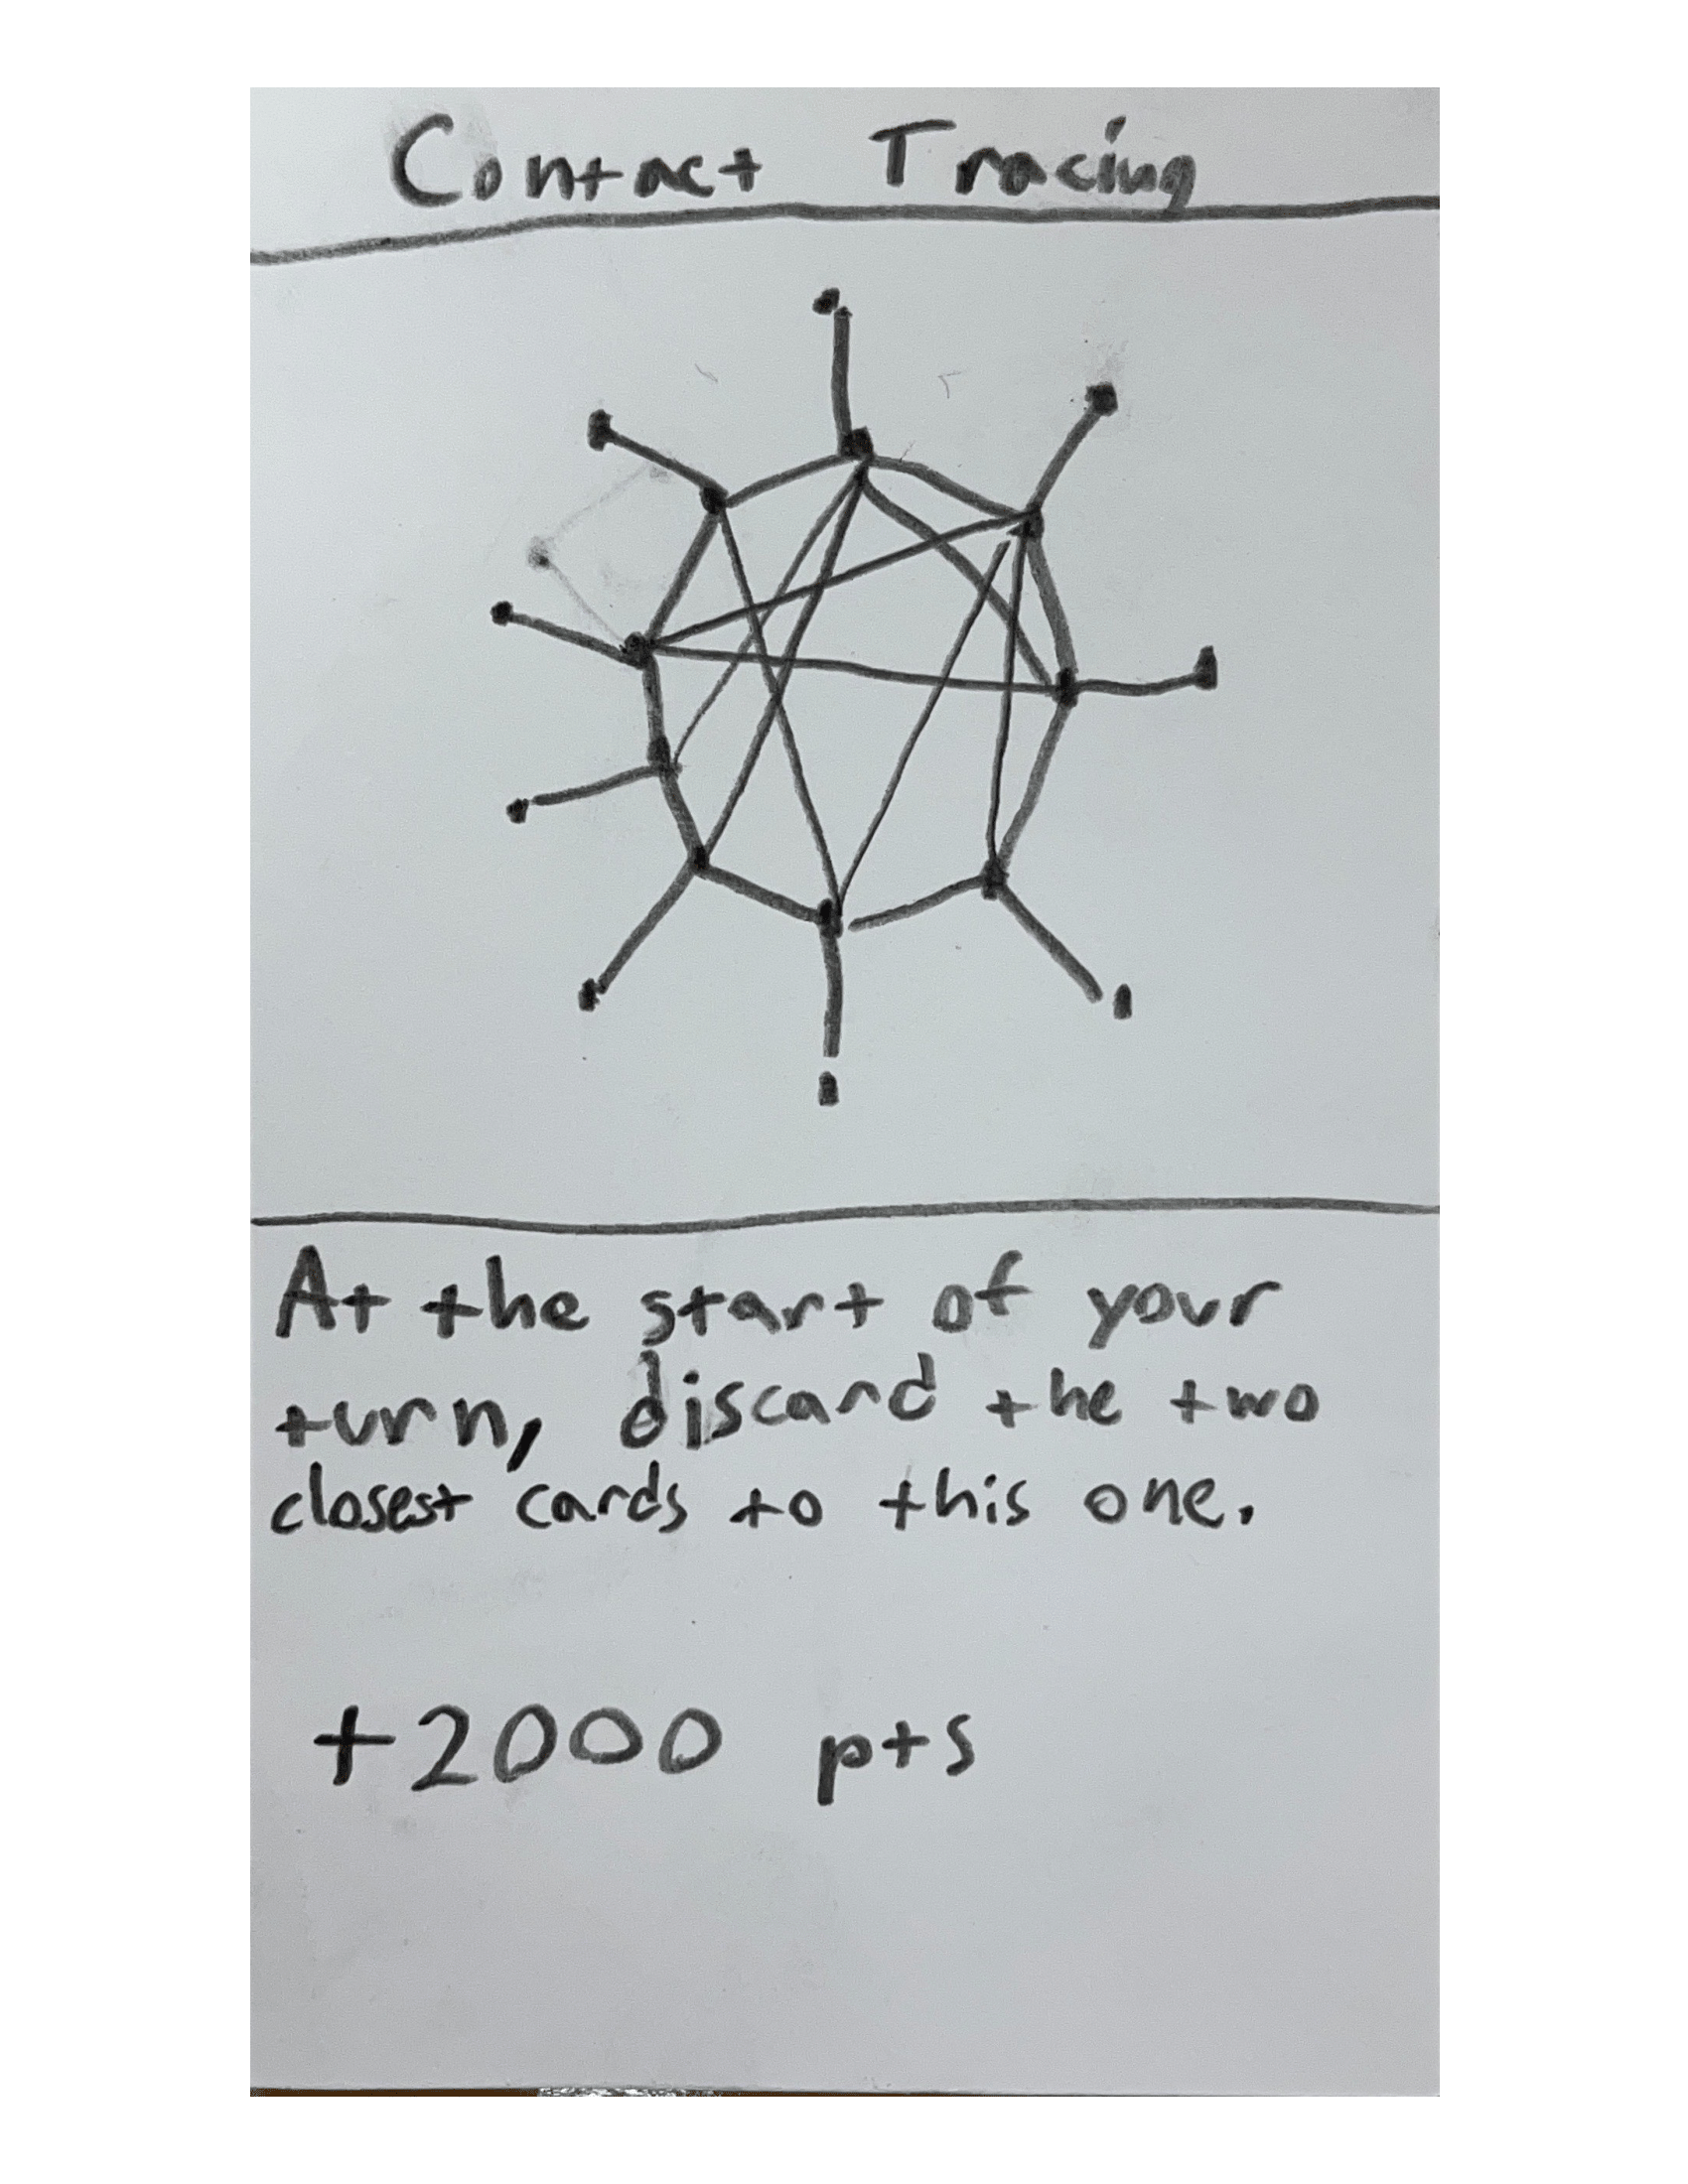 Contact Tracing
At the start of your
turn, discard the two
closest cards to this one.
+2000 pts